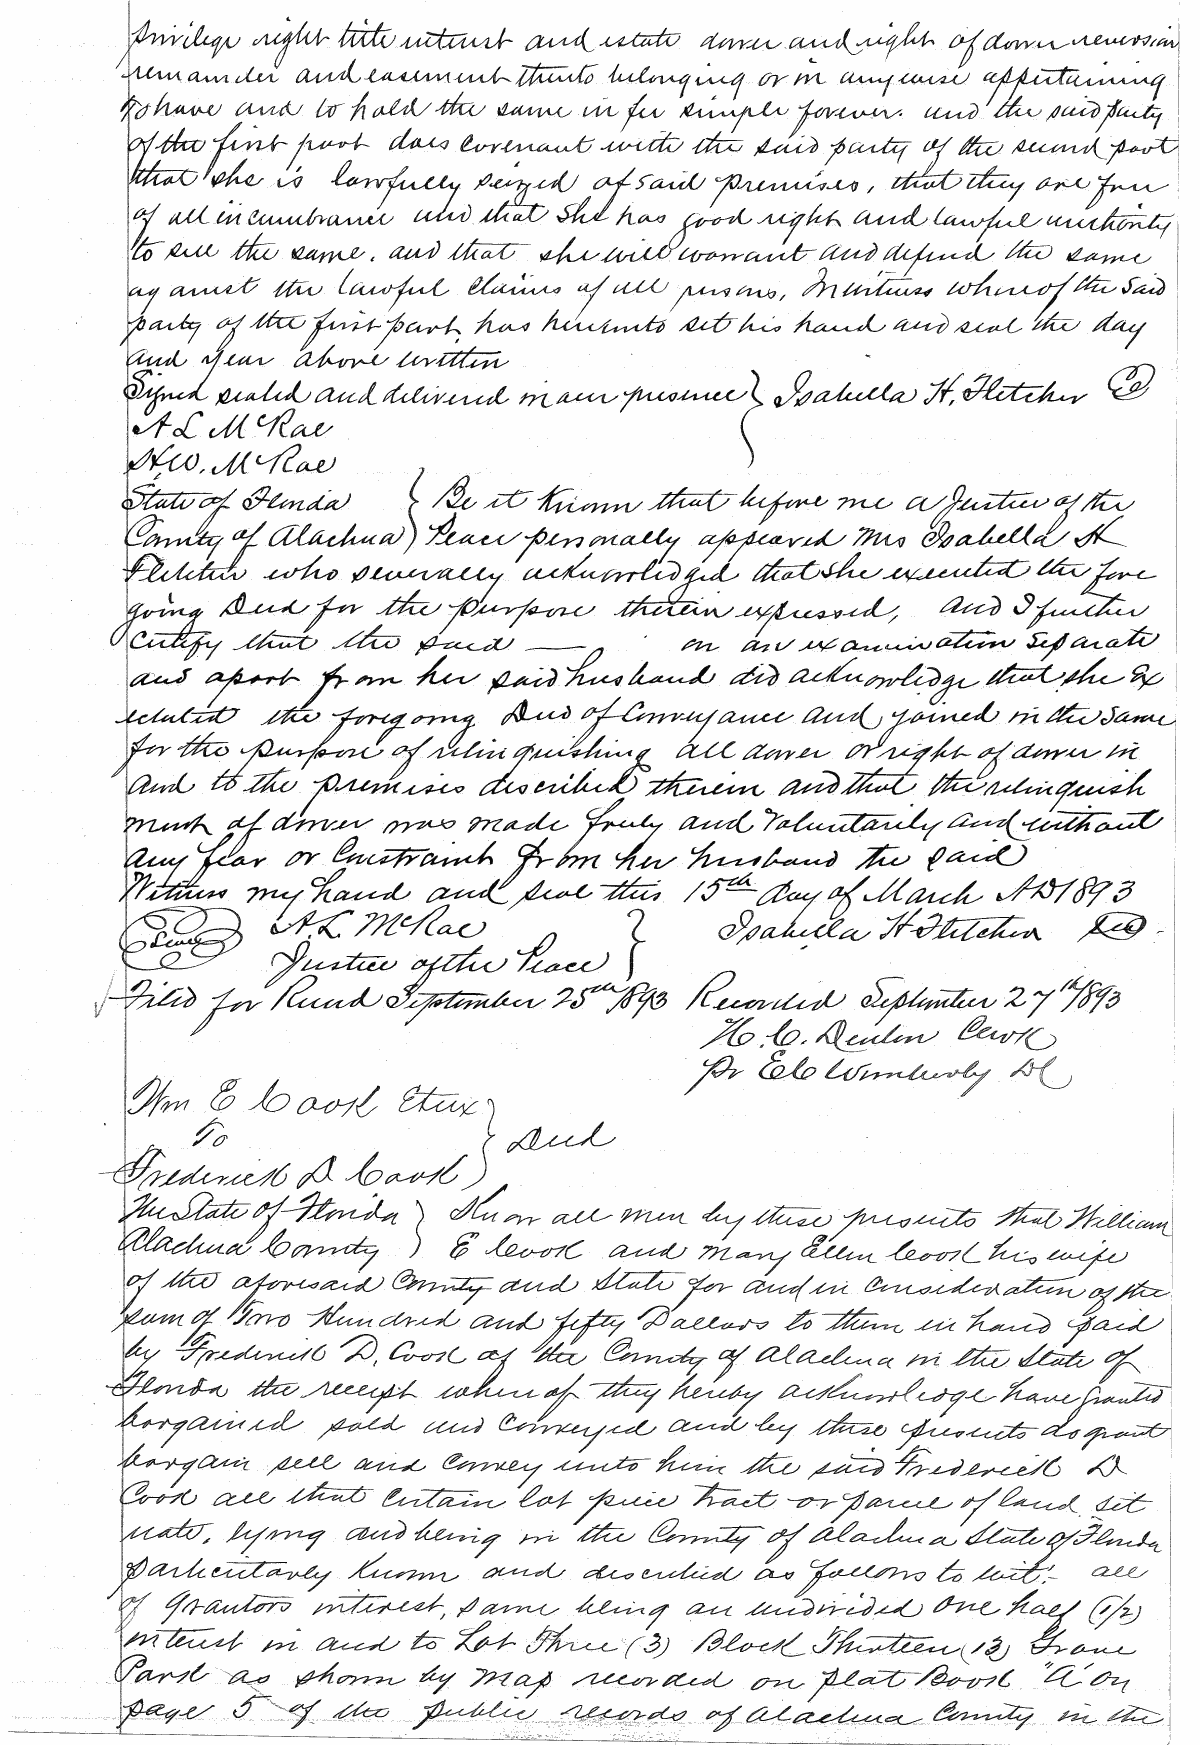 privilege right title interest and estate dower and right of dower reversion
remainder and easement thereto belonging or in anywise appertaining
To have and to hold the same in fee simple forever. and the said party
of the first part does covenant with the said party of the second part
that she is lawfully seized of said premises, that they are free
of all incumbrance and that she has good right and lawful authority
to sell the same. and that she will warrant and defend the same
against the lawful claims of all persons, In witness whereof the said
party of the first part has hereunto set his hand and seal the day
and year above written
Signed sealed and delivered in our presence } Isabella H. Fletcher
A L McRae
H.W. McRae
State of Florida } Be it Known that before me a Justice of the
County of Alachua } Peace personally appeared Mrs Isabella H
Fletcher who severally acknowledged that she executed the fore
going Deed for the purpose therein expressed, and I further
certify that the said — on an examination separate
and apart from her said husband did acknowledge that she Ex
ecuted the foregoing Deed of Conveyance and joined in the same
for the purpose of relinquishing all dower or right of dower in
and to the premises described therein and that the relinquish
ment of dower was made freely and voluntarily and without
any fear or Constraint from her husband the said
Witness my hand and seal this 15th day of March AD 1893
Seal A.L. McRae } Isabella H Fletcher Seal
Justice of the Peace
Filed for Record September 25th 1893 Recorded September 27th 1893
H. C. Denton Clerk
Pr E C Wimberly DC
Wm E Cook Etux }
To } Deed
Frederick D Cook }
The State of Florida } Know all men by these presents that William
Alachua County } E Cook and Mary Ellen Cook his wife
of the aforesaid County and State for and in consideration of the
sum of Two Hundred and fifty Dollars to them in hand paid
by Frederick D. Cook of the County of Alachua in the State of
Florida the receipt whereof they hereby acknowledge have granted
bargained sold and conveyed and by these presents do grant
bargain sell and convey unto him the said Frederick D
Cook all that certain lot piece tract or parcel of land sit
uate, lying and being in the County of Alachua State of Florida
particularly Known and described as follows to wit:- all
of Grantors interest, same being an undivided one half (1/2)
interest in and to Lot Three (3) Block Thirteen (13) Grove
Park as shown by Map recorded on plat Book "A" on
page 5 of the public records of Alachua County in the